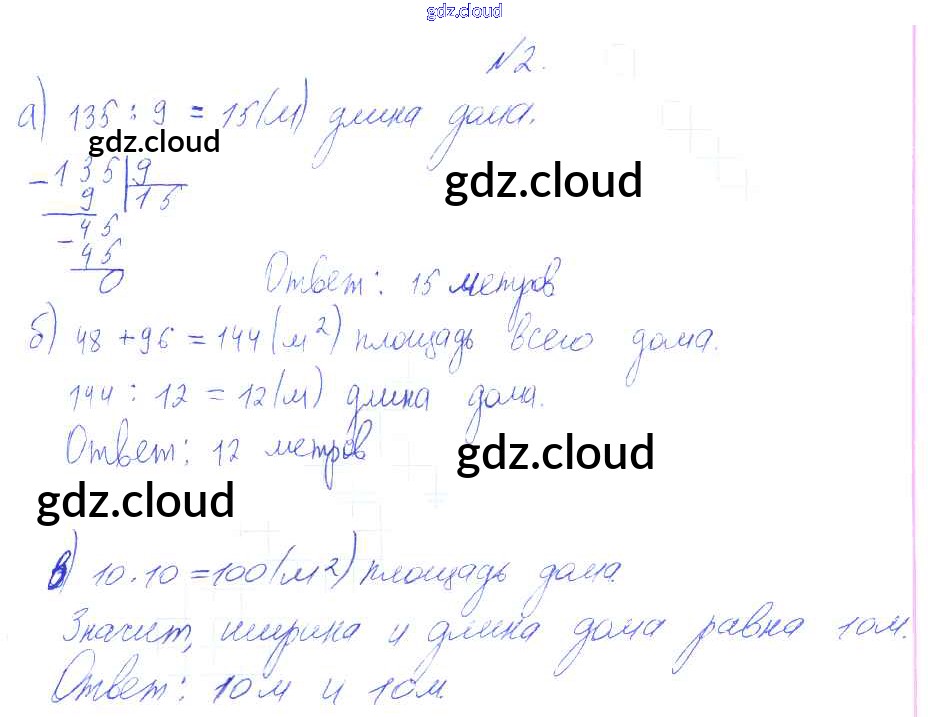 gdz.cloud
№2.
а) 135 : 9 = 15(м) длина дома.
gdz.cloud
- 135 | 9
9 | 15
gdz.cloud
- 45
45
0
Ответ: 15 метров
б) 48 + 96 = 144(м²) площадь всего дома.
144 : 12 = 12(м) длина дома.
Ответ: 12 метров
gdz.cloud
gdz.cloud
в) 10·10 = 100(м²) площадь дома
Значит, ширина и длина дома равна 10м.
Ответ: 10м и 10м.